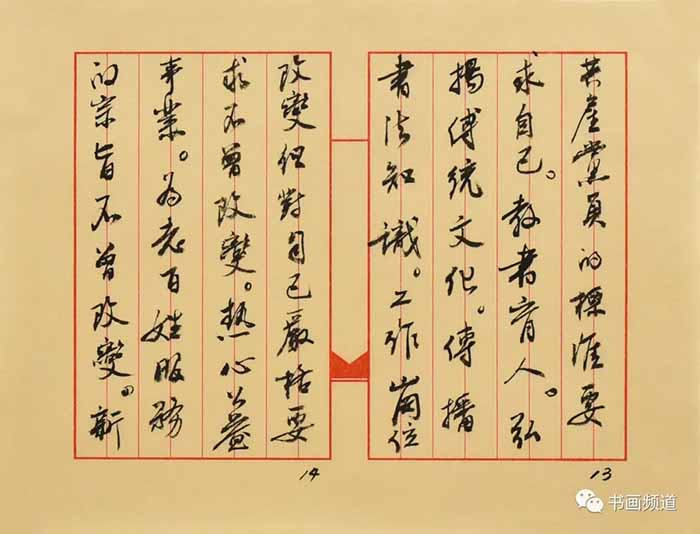 共產黨員的標準要
求自己。教書育人。弘
揚傳統文化。傳播
書法知識。工作崗位
13
改變但對自己嚴格要
求不曾改變。熱心公益
事業。為老百姓服務
的宗旨不曾改變。新
14
书画频道